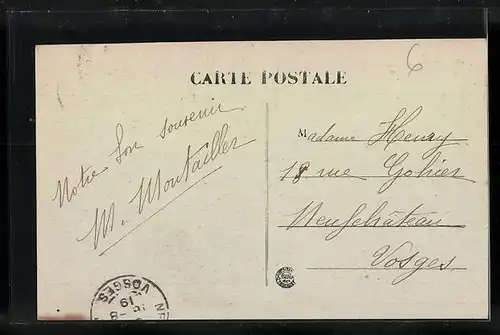 CARTE POSTALE
6
Notre bon souvenir
M. Montailler
Madame Henry
18 rue Gohier
Neufchâteau
Vosges
VOSGES
19